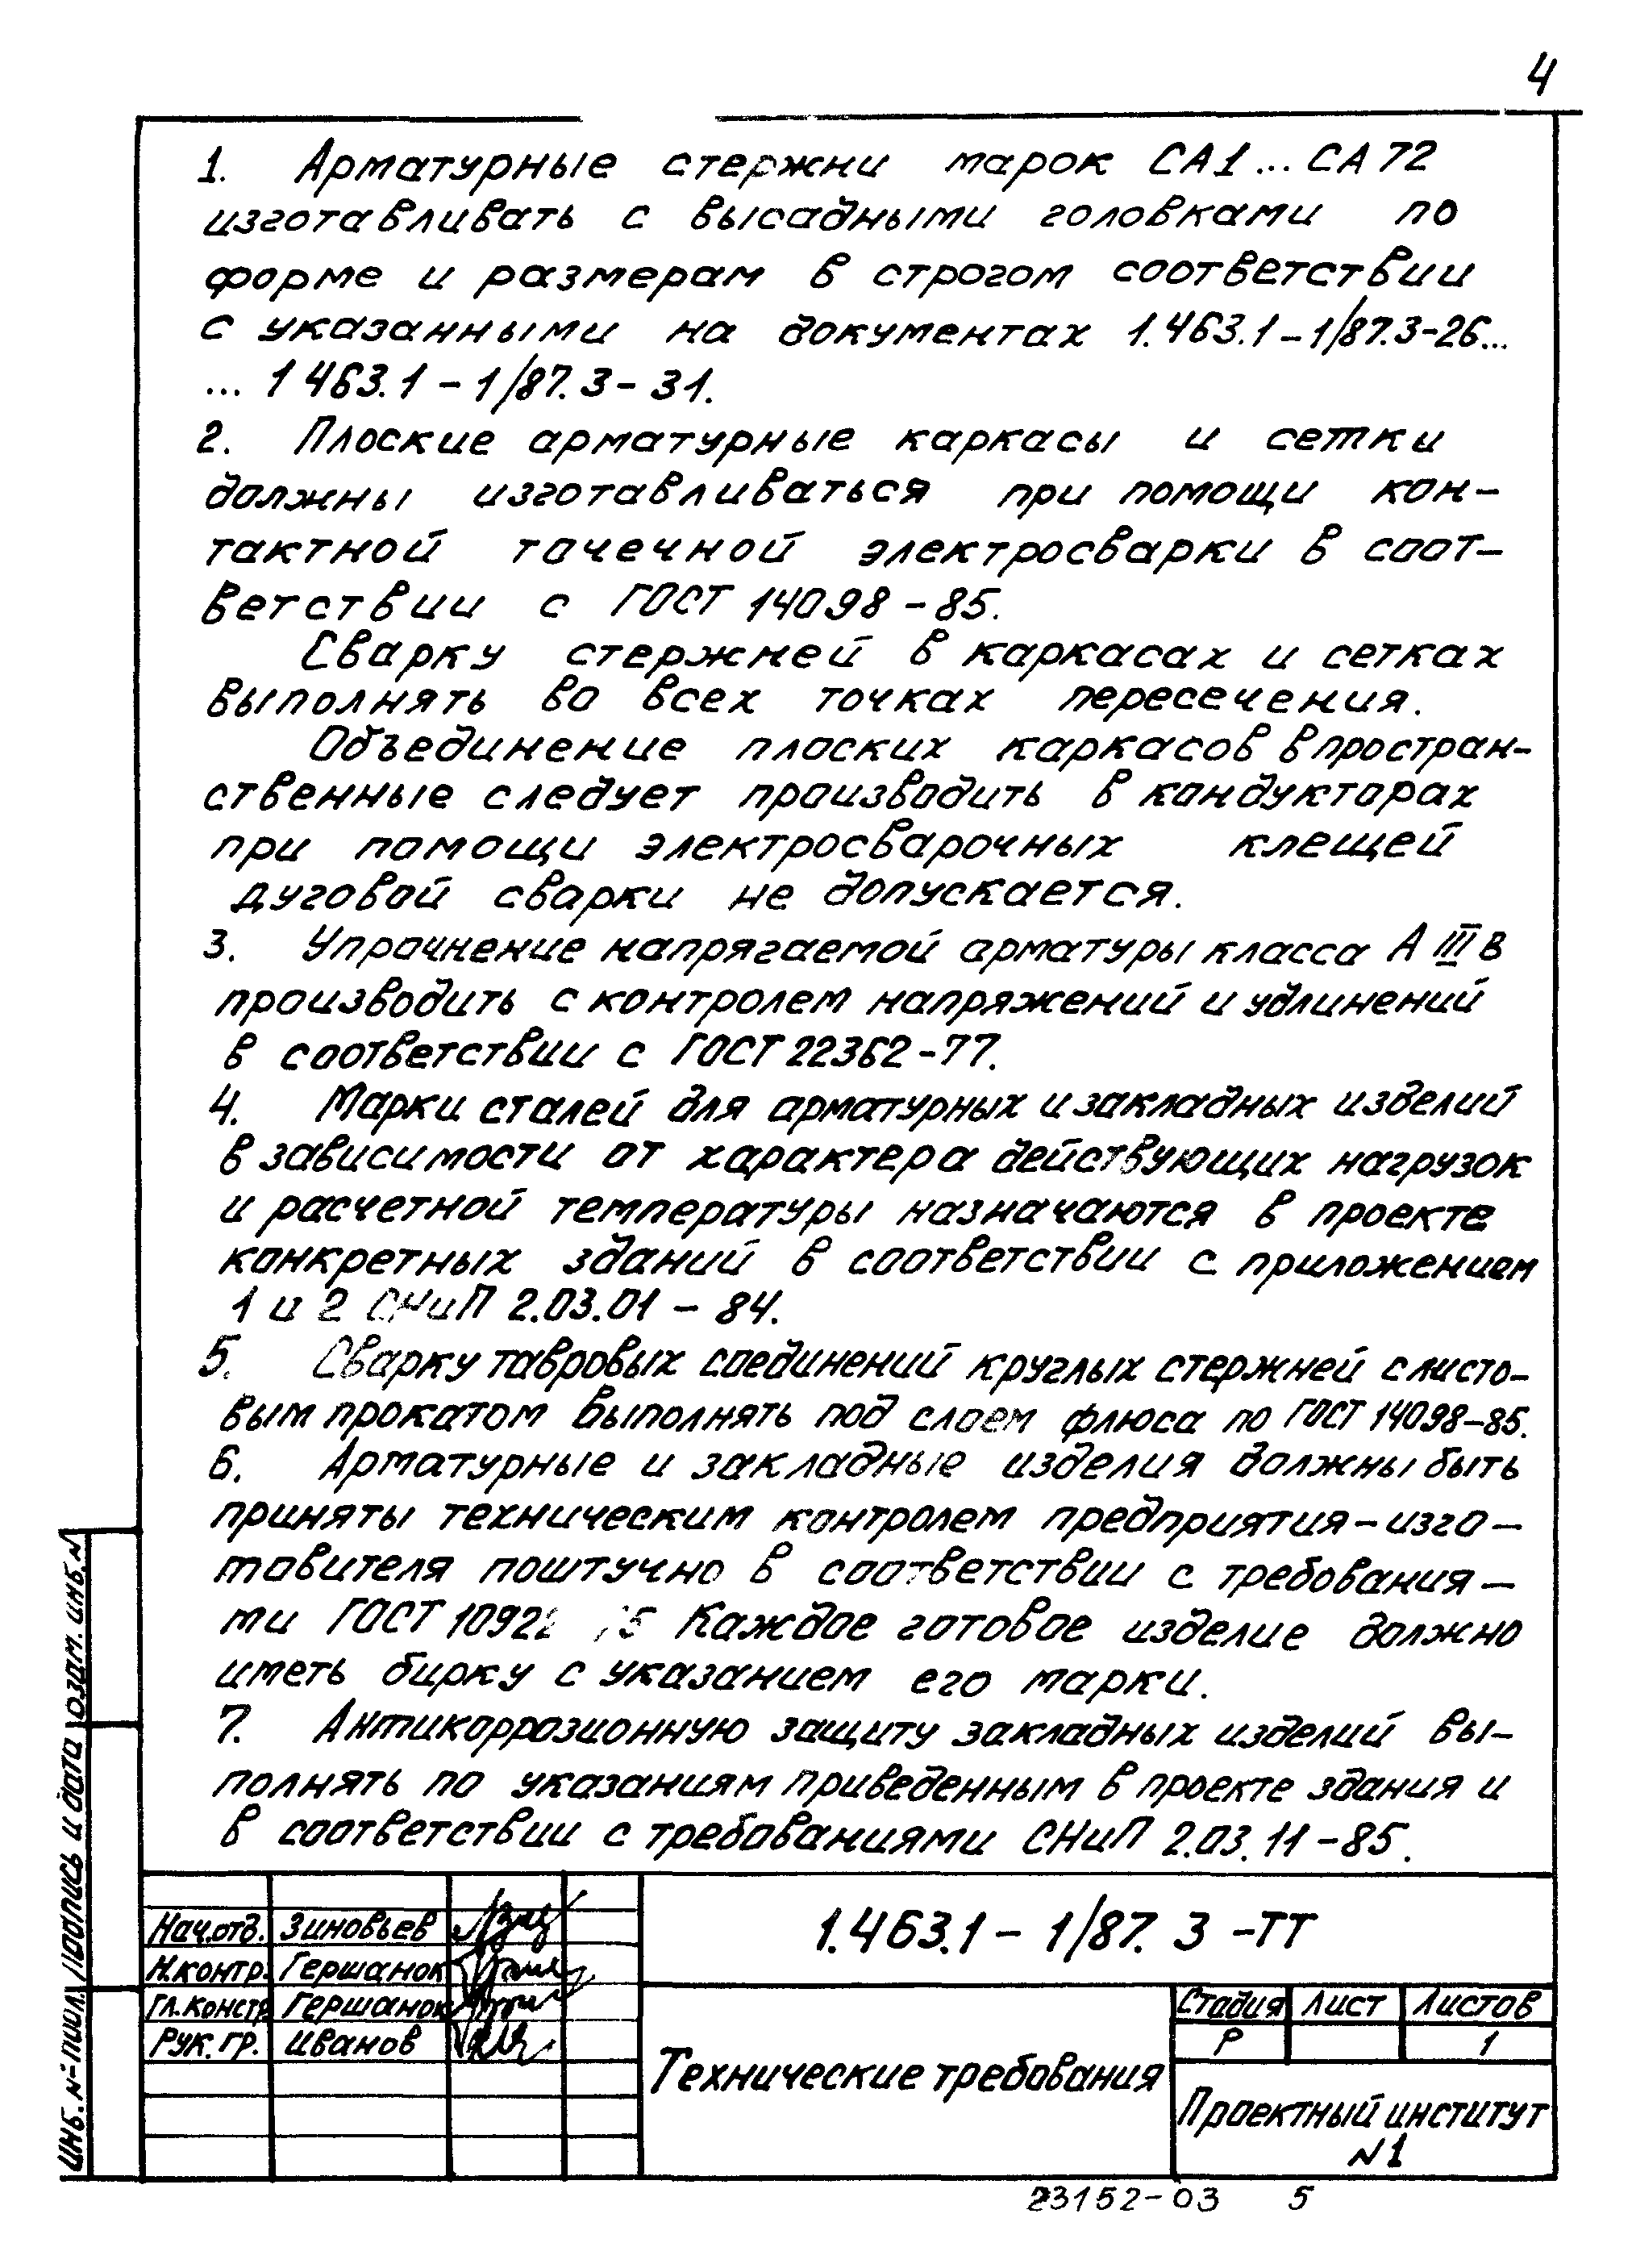 4
1. Арматурные стержни марок СА1...СА72
изготавливать с высадными головками по
форме и размерам в строгом соответствии
с указанными на документах 1.463.1-1/87.3-26...
... 1 463.1-1/87.3-31.
2. Плоские арматурные каркасы и сетки
должны изготавливаться при помощи кон-
тактной точечной электросварки в соот-
ветствии с ГОСТ 14098-85.
Сварку стержней в каркасах и сетках
выполнять во всех точках пересечения.
Объединение плоских каркасов в простран-
ственные следует производить в кондукторах
при помощи электросварочных клещей
дуговой сварки не допускается.
3. Упрочнение напрягаемой арматуры класса А III В
производить с контролем напряжений и удлинений
в соответствии с ГОСТ 22362-77.
4. Марки сталей для арматурных и закладных изделий
в зависимости от характера действующих нагрузок
и расчетной температуры назначаются в проекте
конкретных зданий в соответствии с приложением
1 и 2 СНиП 2.03.01-84.
5. Сварку тавровых соединений круглых стержней с листо-
вым прокатом выполнять под слоем флюса по ГОСТ 14098-85.
6. Арматурные и закладные изделия должны быть
приняты техническим контролем предприятия-изго-
товителя поштучно в соответствии с требования-
ми ГОСТ 10922 Каждое готовое изделие должно
иметь бирку с указанием его марки.
7. Антикоррозионную защиту закладных изделий вы-
полнять по указаниям приведенным в проекте здания и
в соответствии с требованиями СНиП 2.03.11-85.
Нач.отд. Зиновьев
Н.контр. Гершанок
Гл.констр Гершанок
Рук.гр. Иванов
1.463.1-1/87.3-ТТ
Технические требования
Стадия Лист Листов
Р 1
Проектный институт
N1
Инв.N подл. Подпись и дата Взам. инв.N
23152-03 5